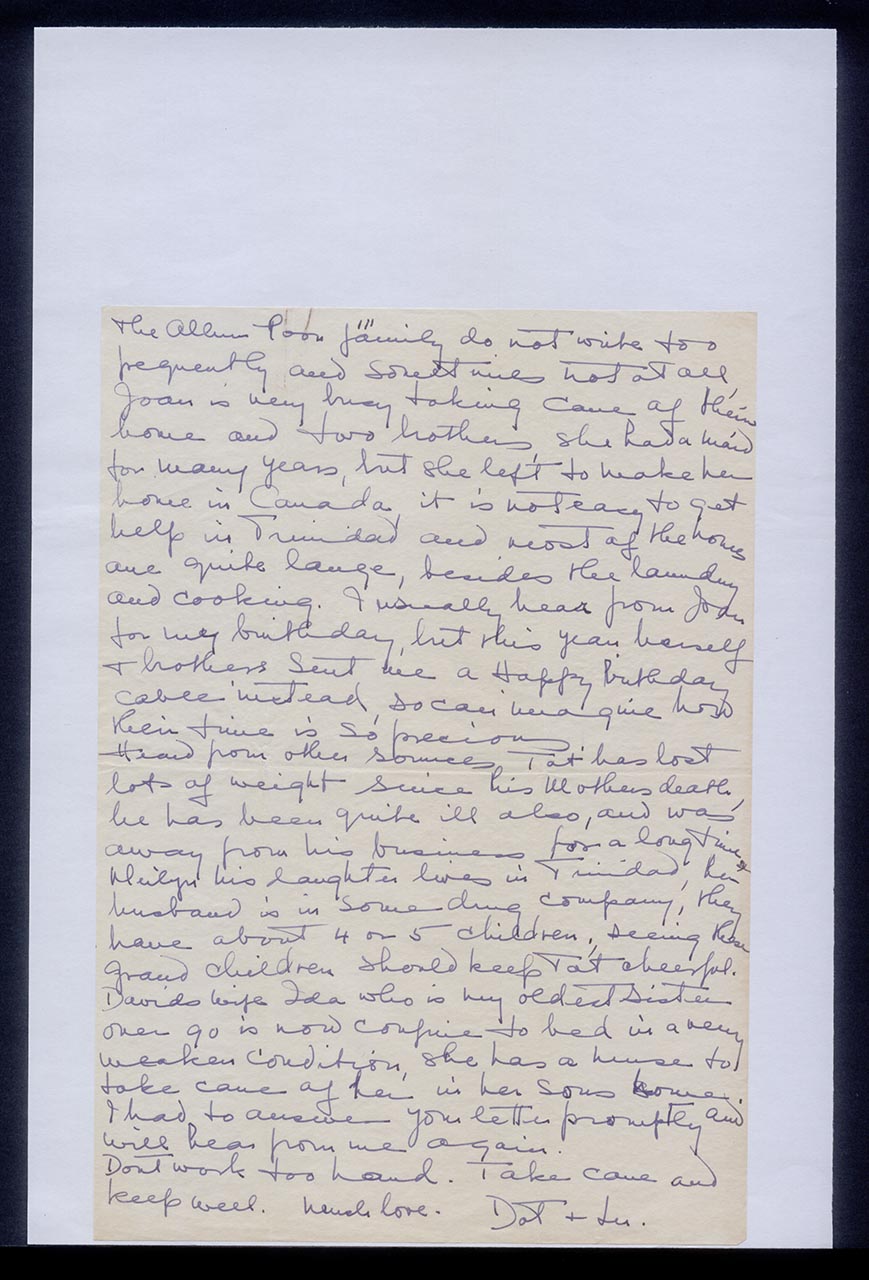 the Allum Poon family do not write too
frequently and sometimes not at all,
Joan is very busy taking care of their
home and two brothers, she had a maid
for many years, but she left to make her
home in Canada, it is not easy to get
help in Trinidad and most of the homes
are quite large, besides the laundry
and cooking. I usually hear from Joan
for my birthday, but this year herself
& brothers sent me a Happy Birthday
cable instead, so can imagine how
their time is so precious.
Heard from other sources, Tat has lost
lots of weight since his Mothers death,
he has been quite ill also, and was
away from his business for a long time
his daughter lives in Trinidad, her
husband is in some drug company, they
have about 4 or 5 children, seeing these
grand children should keep Tat cheerful.
Davids wife Ida who is my oldest sister
over 90 is now confine to bed in a very
weaken condition, she has a nurse to
take care of her in her sons home.
I had to answer your letter promptly and
will hear from me again.
Dont work too hard. Take care and
keep well. Much love. Dot +